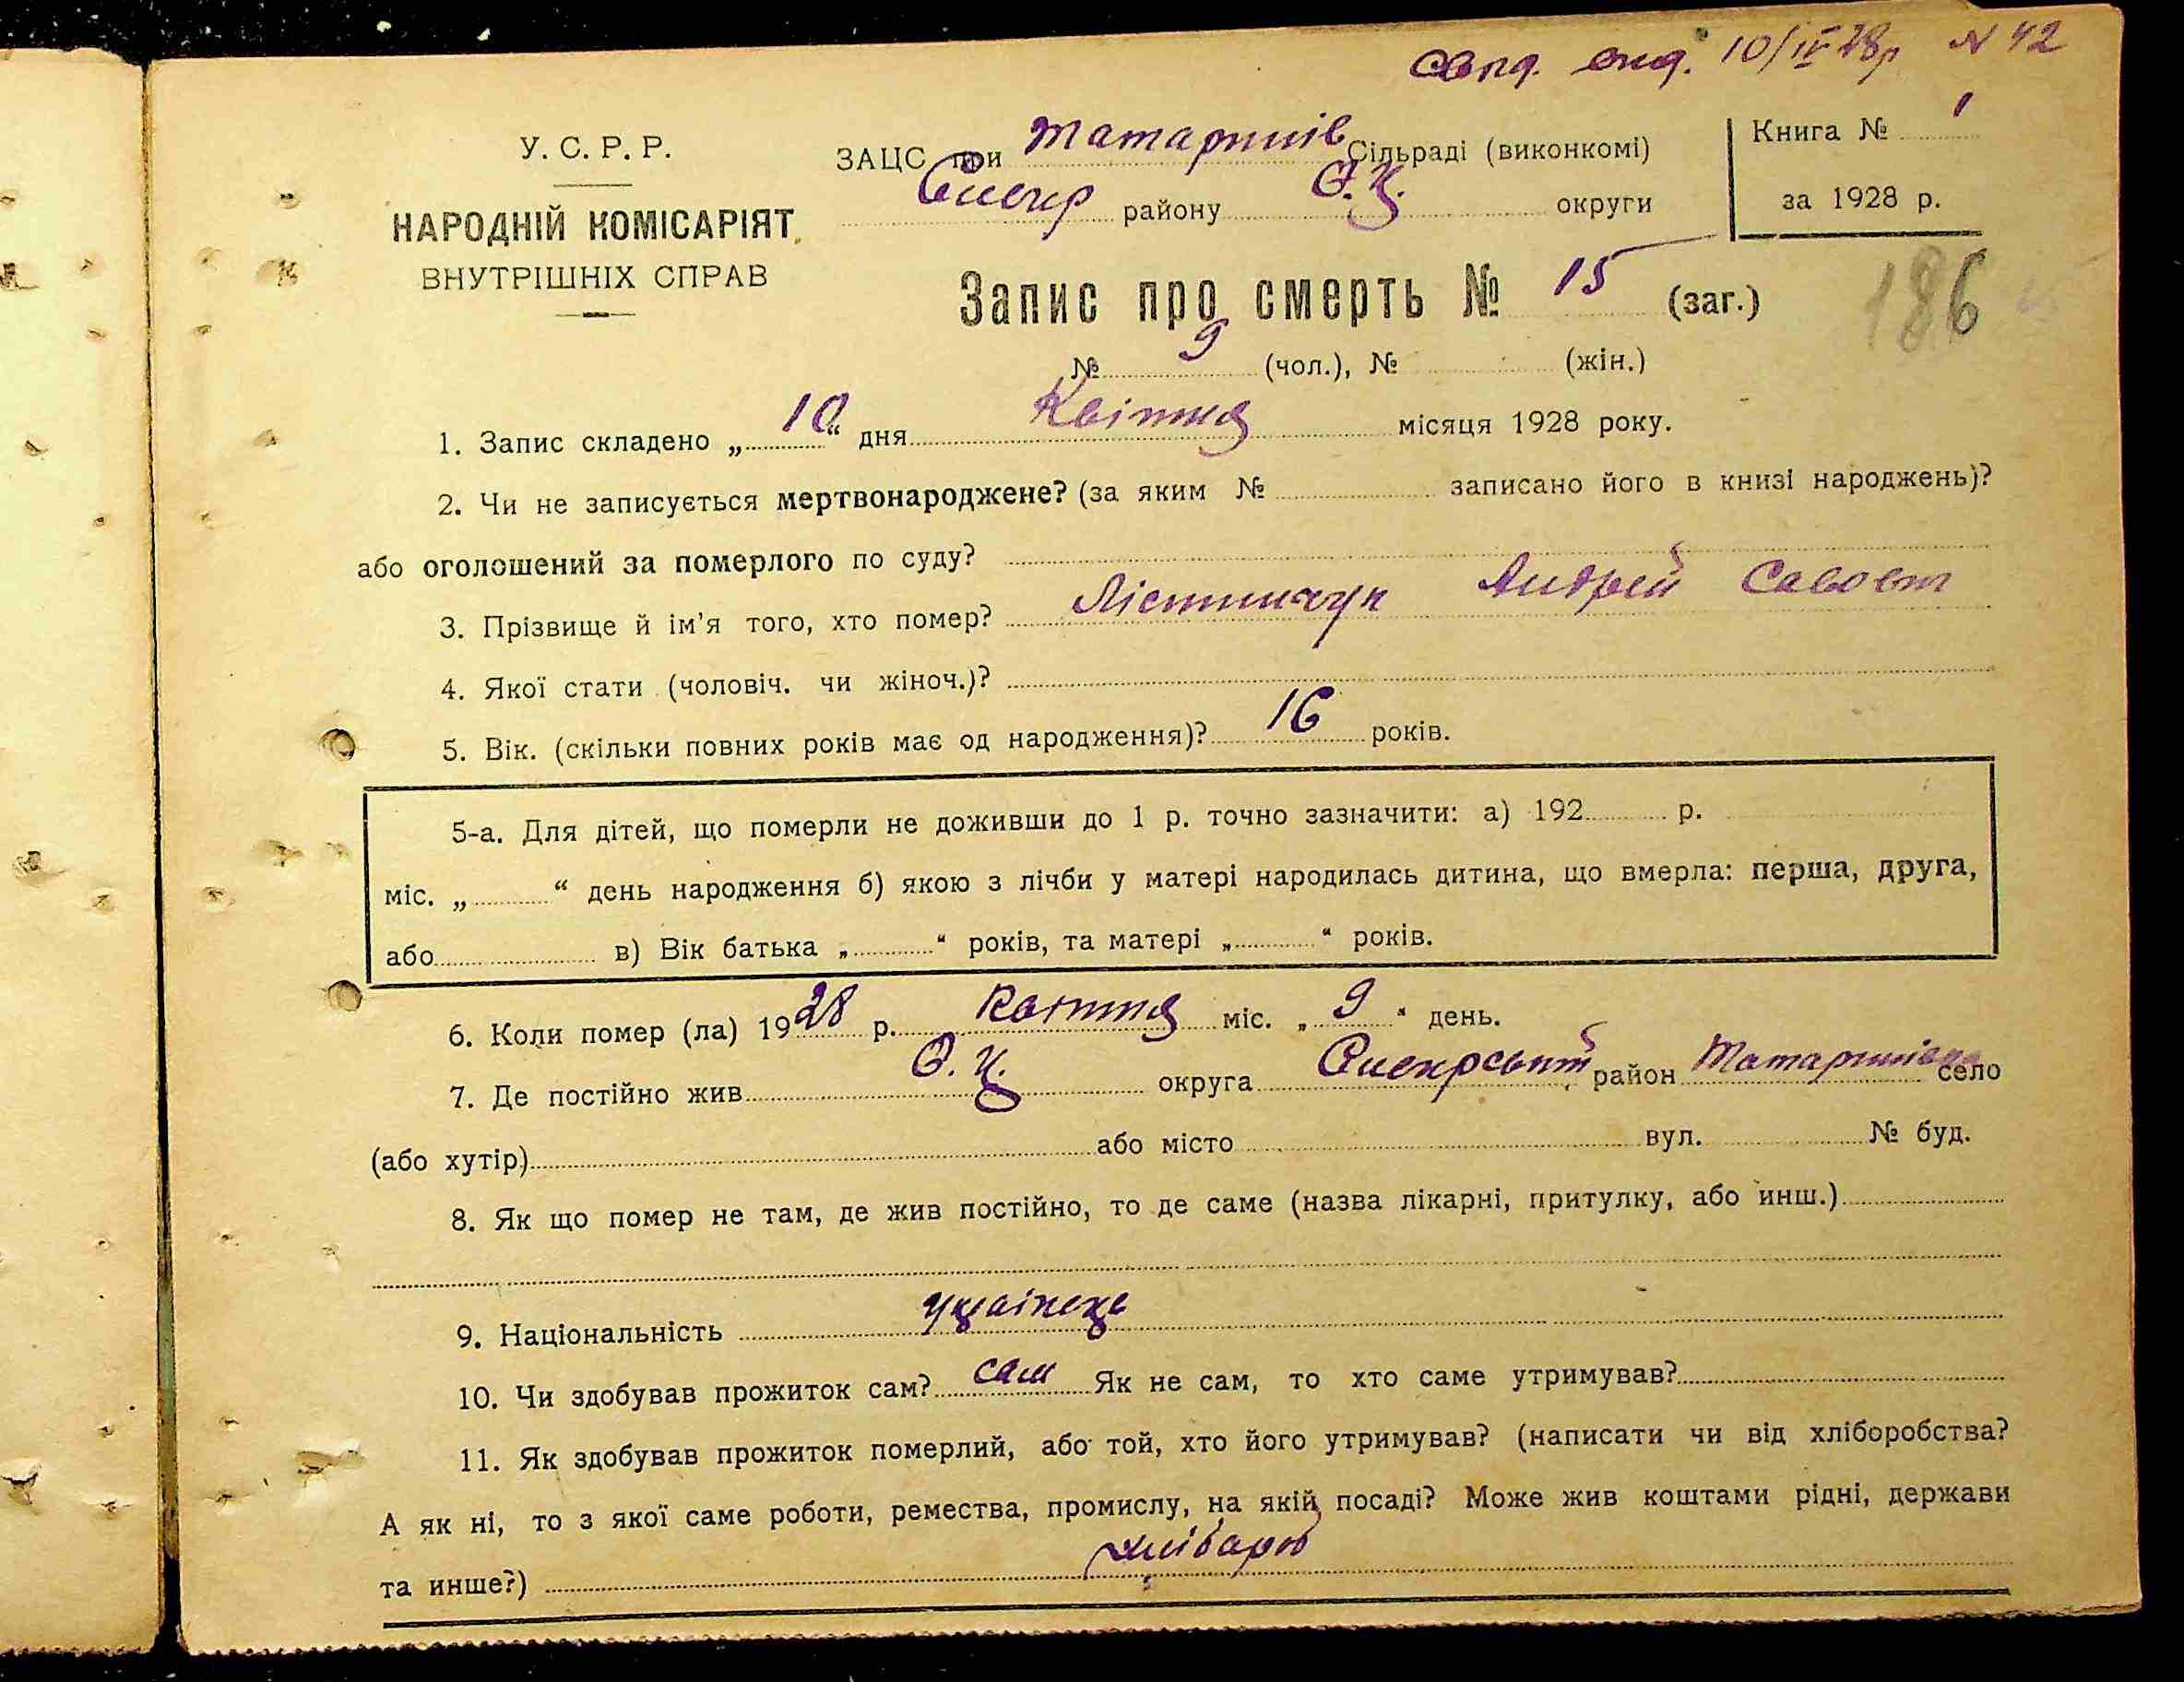 свід. вид. 10/IV 28р N 42
У. С. Р. Р.
НАРОДНІЙ КОМІСАРІЯТ
ВНУТРІШНІХ СПРАВ
ЗАЦС при Татаринів Сільраді (виконкомі)
району округи
Книга № 1
за 1928 р.
Запис про смерть № 15 (заг.)
186
№ 9 (чол.), № (жін.)
1. Запис складено „ 10 “ дня Квітня місяця 1928 року.
2. Чи не записується мертвонароджене? (за яким № записано його в книзі народжень)?
або оголошений за померлого по суду?
3. Прізвище й ім’я того, хто помер? Андрей
4. Якої стати (чоловіч. чи жіноч.)?
5. Вік. (скільки повних років має од народження)? 16 років.
5-а. Для дітей, що померли не доживши до 1 р. точно зазначити: а) 192 р.
міс. „ “ день народження б) якою з лічби у матері народилась дитина, що вмерла: перша, друга,
або в) Вік батька „ “ років, та матері „ “ років.
6. Коли помер (ла) 1928 р. Квітня міс. „ 9 “ день.
7. Де постійно жив округа район село
(або хутір) або місто вул. № буд.
8. Як що помер не там, де жив постійно, то де саме (назва лікарні, притулку, або инш.)
9. Національність
10. Чи здобував прожиток сам? сам Як не сам, то хто саме утримував?
11. Як здобував прожиток померлий, або той, хто його утримував? (написати чи від хліборобства?
А як ні, то з якої саме роботи, ремества, промислу, на якій посаді? Може жив коштами рідні, держави
та инше?)